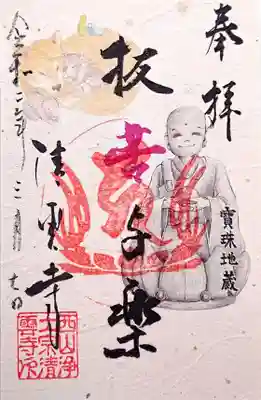 奉拝
寶珠地蔵
抜苦与楽
令和二年三月
清雲寺
西山浄
土宗清
雲寺印